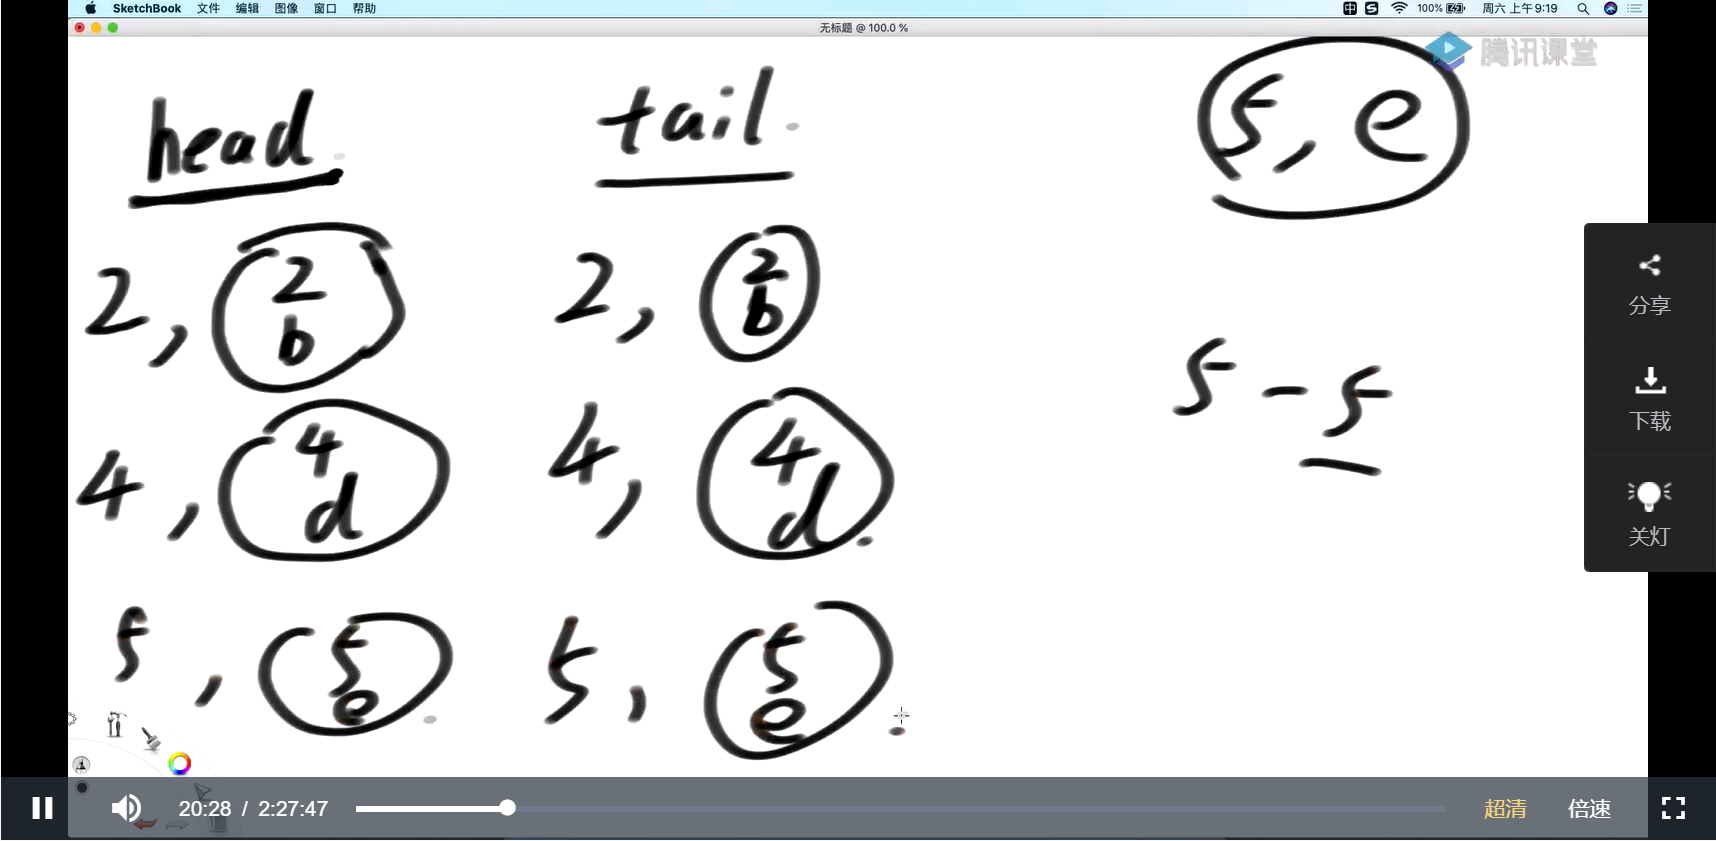 SketchBook 文件 编辑 图像 窗口 帮助 中 S 100% 周六 上午9:19
无标题 @ 100.0 %
腾讯课堂
head tail 5, e
2, 2 b 2, 2 b
5-5
4, 4 d 4, 4 d
5, 5 e 5, 5 e
分享
下载
关灯
20:28 / 2:27:47 超清 倍速